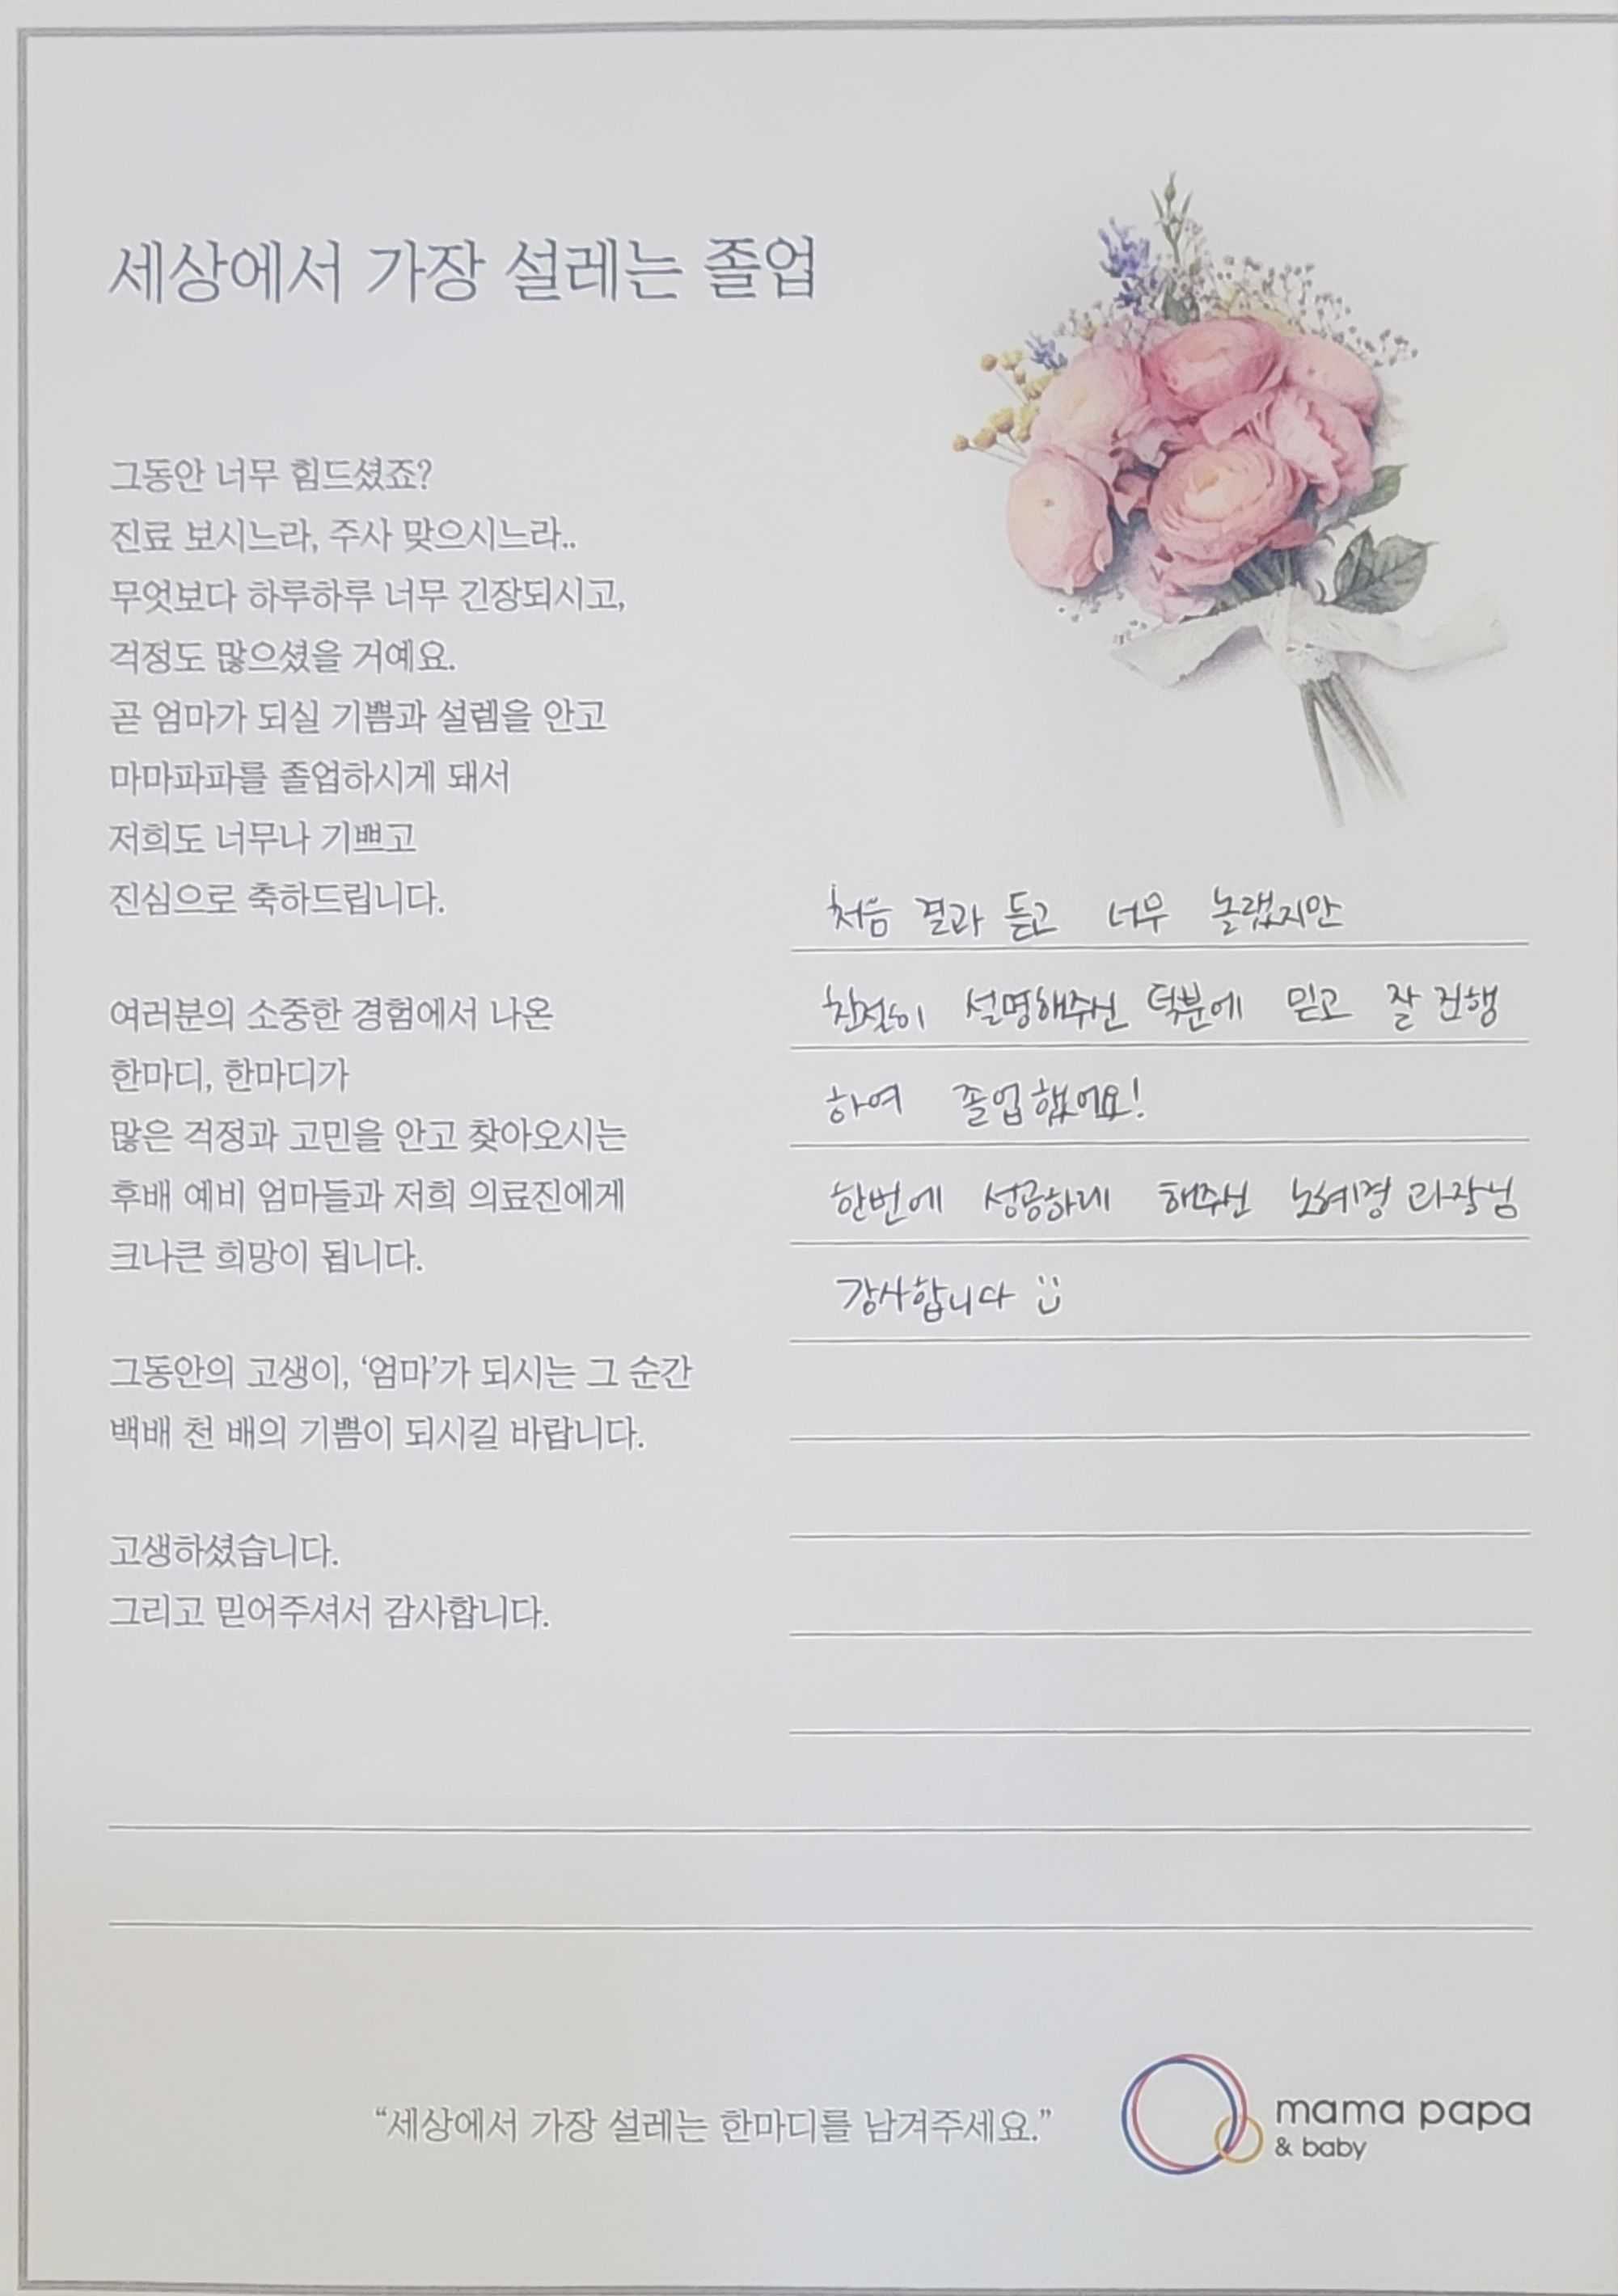 세상에서 가장 설레는 졸업
그동안 너무 힘드셨죠?
진료 보시느라, 주사 맞으시느라..
무엇보다 하루하루 너무 긴장되시고,
걱정도 많으셨을 거예요.
곧 엄마가 되실 기쁨과 설렘을 안고
마마파파를 졸업하시게 돼서
저희도 너무나 기쁘고
진심으로 축하드립니다.
여러분의 소중한 경험에서 나온
한마디, 한마디가
많은 걱정과 고민을 안고 찾아오시는
후배 예비 엄마들과 저희 의료진에게
크나큰 희망이 됩니다.
그동안의 고생이, ‘엄마’가 되시는 그 순간
백배 천 배의 기쁨이 되시길 바랍니다.
고생하셨습니다.
그리고 믿어주셔서 감사합니다.
처음 결과 듣고 너무 놀랬지만
친절히 설명해주신 덕분에 믿고 잘 진행
하여 졸업했어요!
한번에 성공하게 해주신 노혜경 과장님
감사합니다
“세상에서 가장 설레는 한마디를 남겨주세요.”
mama papa
& baby